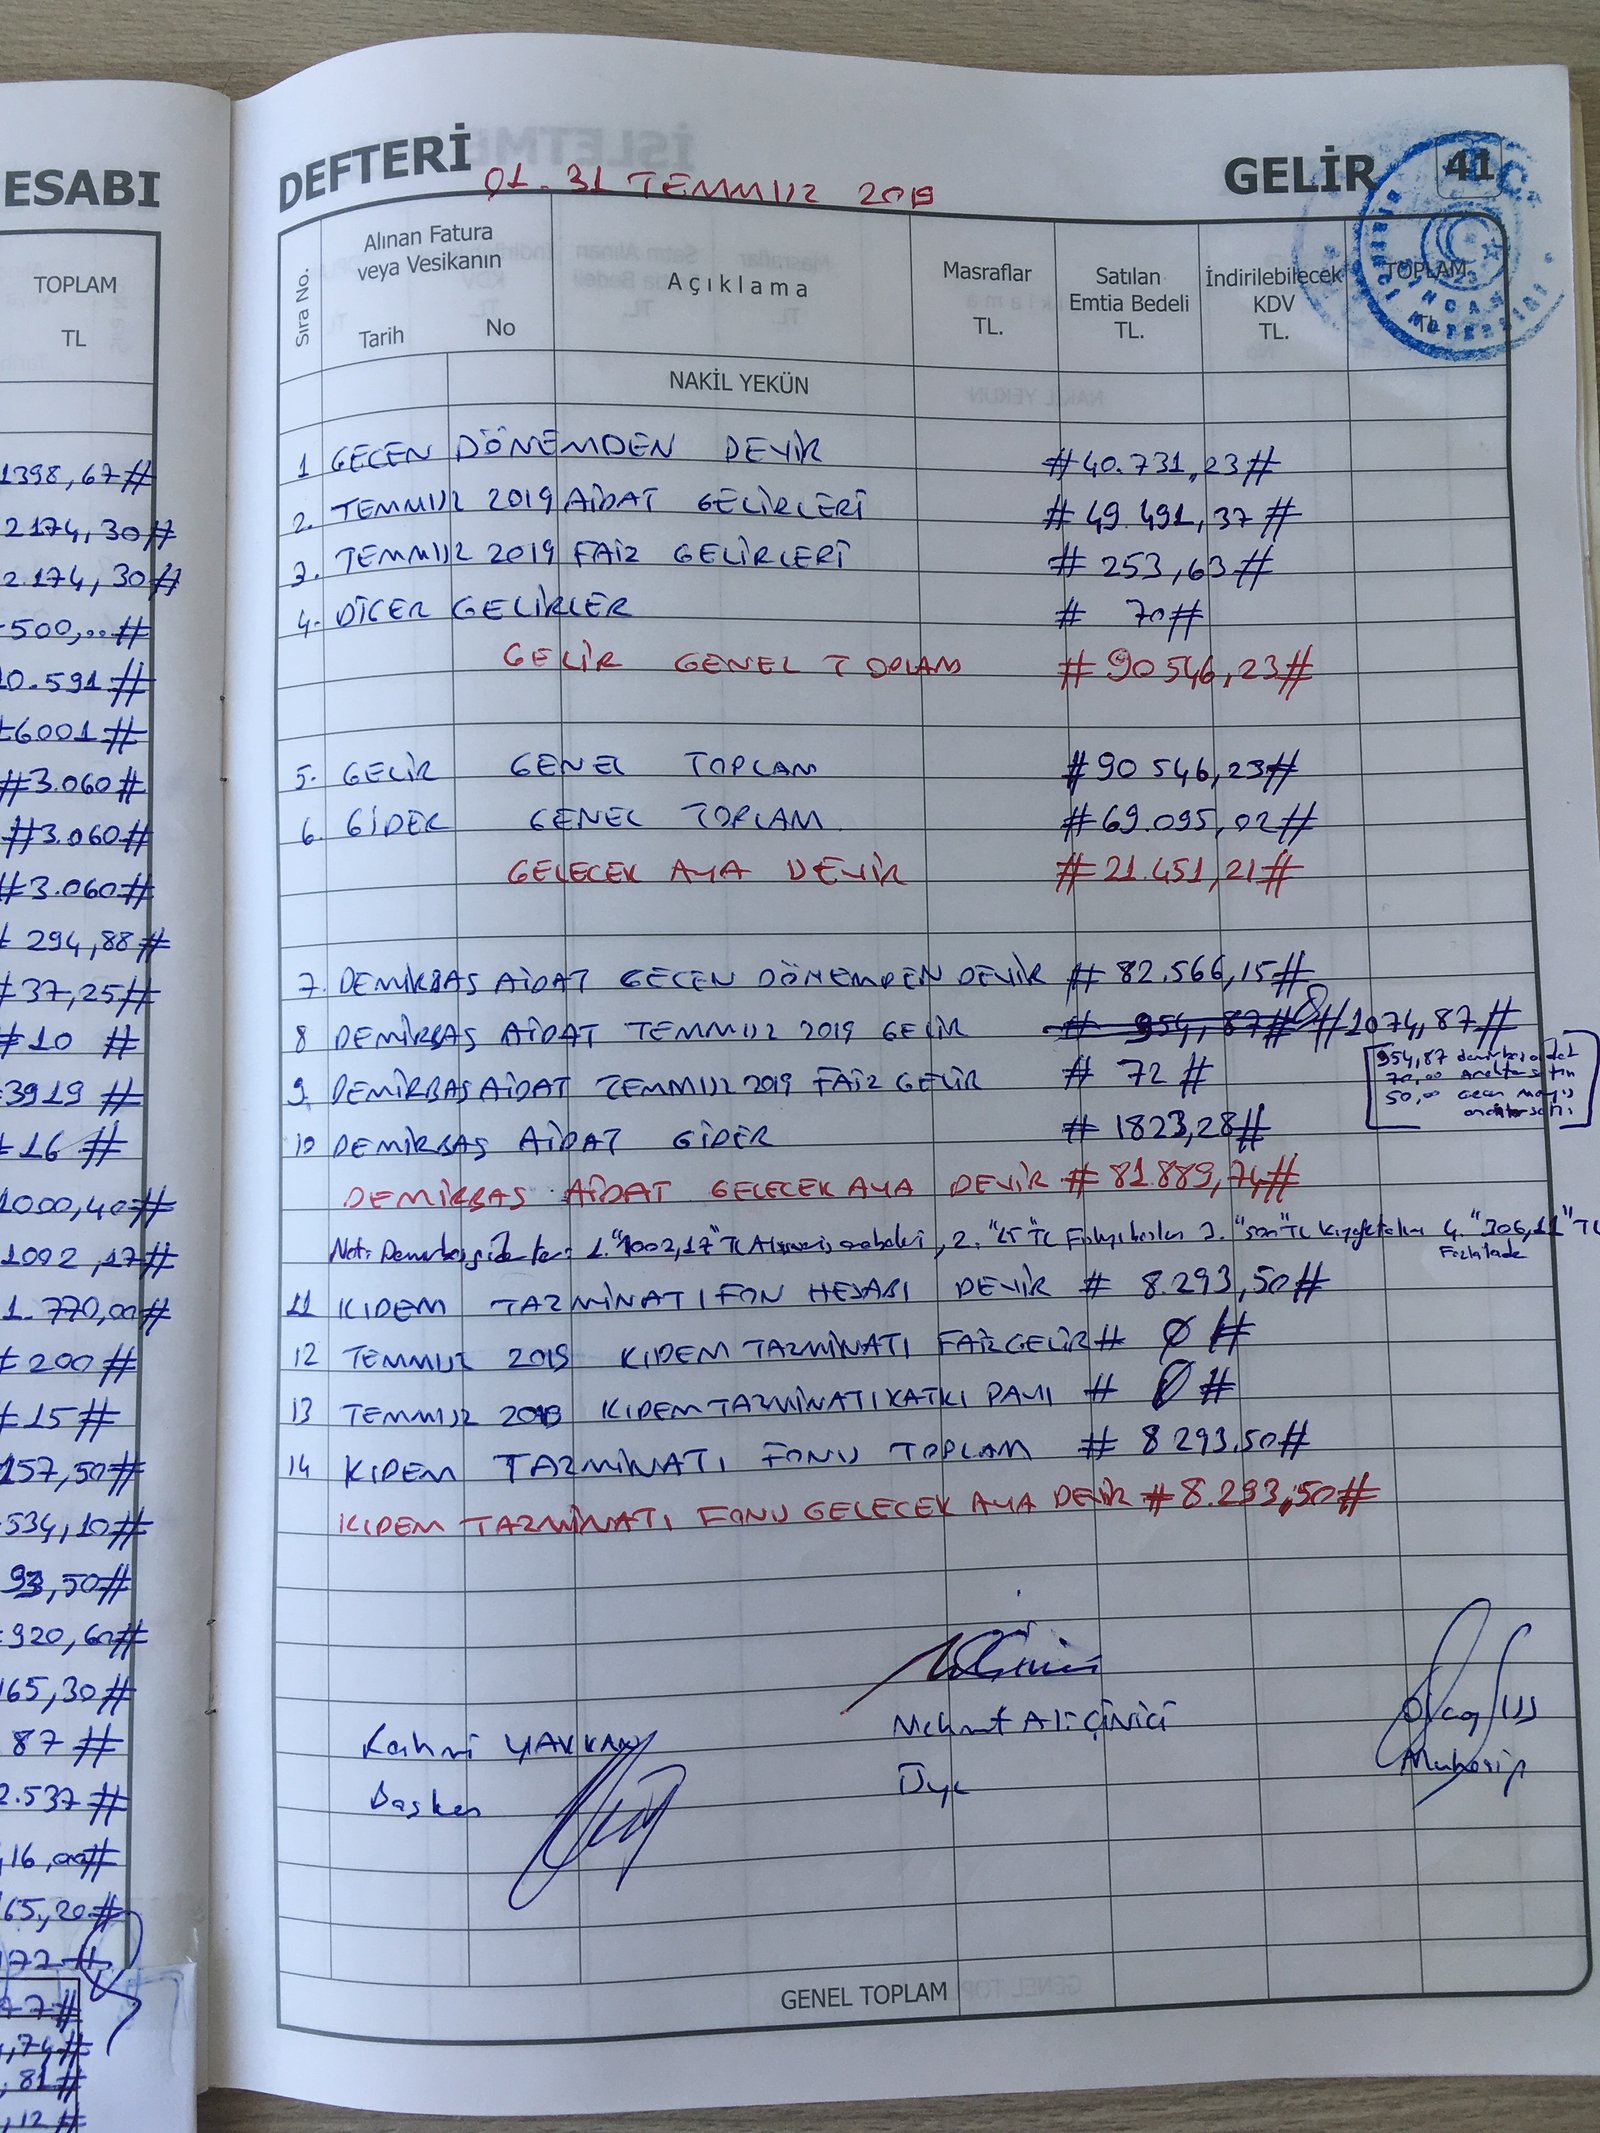 ESABI
TOPLAM
TL
1398,67#
2174,30#
2.174,30#
500,..#
0.591#
6001#
#3.060#
#3.060#
#3.060#
294,88#
#37,25#
#10 #
3919 #
16 #
1000,40#
1092,17#
1.770,00#
200#
15#
157,50#
534,10#
93,50#
920,60#
165,30#
87 #
2.537#
16,00#
65,20#
177#
77#
,74#
,81#
,12#
DEFTERİ 01.31 TEMMUZ 2019 GELİR 41
Sıra No.
Alınan Fatura veya Vesikanın
Tarih No
Açıklama
Masraflar TL.
Satılan Emtia Bedeli TL.
İndirilebilecek KDV TL.
TOPLAM TL
NAKİL YEKÜN
1 GEÇEN DÖNEMDEN DEVİR #40.731,23#
2. TEMMUZ 2019 AİDAT GELİRLERİ #49.491,37#
3. TEMMUZ 2019 FAİZ GELİRLERİ #253,63#
4. DİĞER GELİRLER # 70#
GELİR GENEL TOPLAM #90546,23#
5. GELİR GENEL TOPLAM #90546,23#
6. GİDER GENEL TOPLAM #69.095,02#
GELECEK AYA DEVİR #21.451,21#
7. DEMİRBAŞ AİDAT GEÇEN DÖNEMDEN DEVİR #82.566,15#
8 DEMİRBAŞ AİDAT TEMMUZ 2019 GELİR # 954,87# #1074,87#
954,87 demirbaş aidat
70,00 Anahtar satın
50,00 Geçen mayıs
anahtar satı
9. DEMİRBAŞ AİDAT TEMMUZ 2019 FAİZ GELİR # 72 #
10 DEMİRBAŞ AİDAT GİDER # 1823,28#
DEMİRBAŞ AİDAT GELECEK AYA DEVİR #81.889,74#
Not: 1. "1002,17" TL 2. "15" TL 3. "500" TL 4. "306,11" TL
11 KIDEM TAZMİNATI FON HESABI DEVİR # 8.293,50#
12 TEMMUZ 2019 KIDEM TAZMİNATI FAİZ GELİR # 0 #
13 TEMMUZ 2019 KIDEM TAZMİNATI KATKI PAYI # 0 #
14 KIDEM TAZMİNATI FONU TOPLAM # 8293,50#
KIDEM TAZMİNATI FONU GELECEK AYA DEVİR #8.293,50#
Mehmet Ali ÇİNİCİ
Üye
Başkan
Muhasip
GENEL TOPLAM